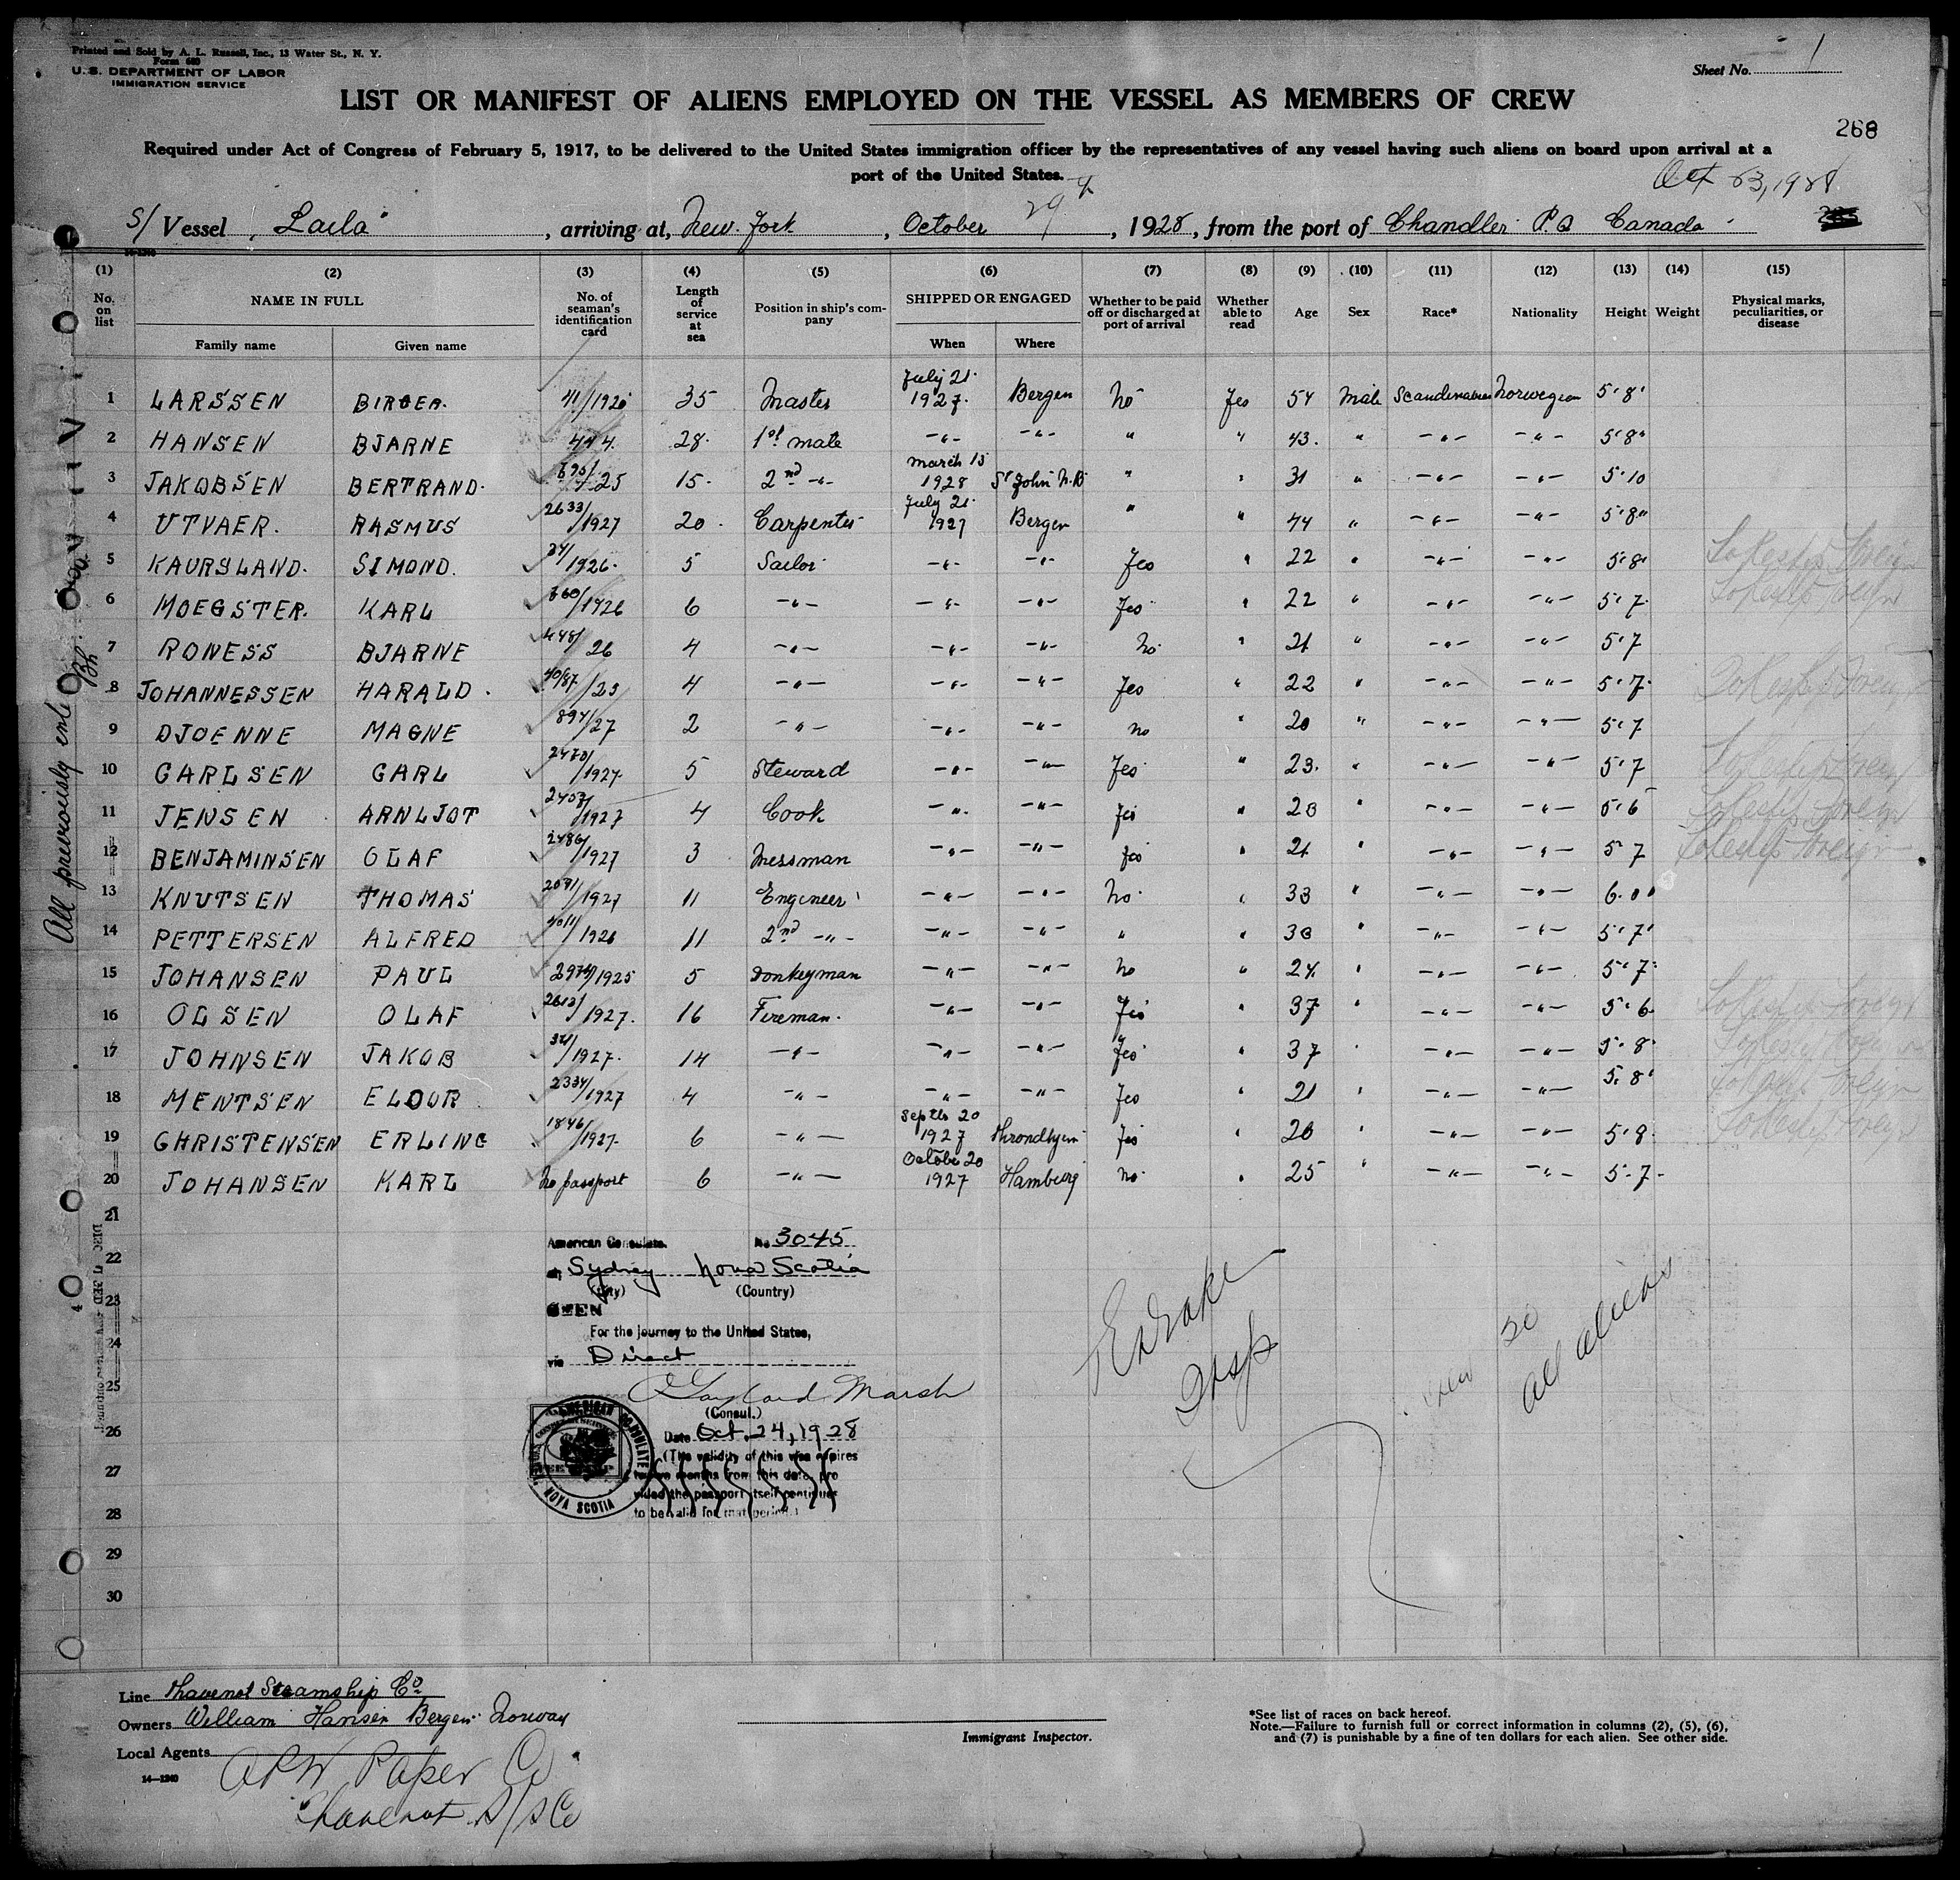 Printed and Sold by A. L. Russell, Inc., 13 Water St., N. Y.
Form 689
U. S. DEPARTMENT OF LABOR
IMMIGRATION SERVICE
Sheet No. 1
LIST OR MANIFEST OF ALIENS EMPLOYED ON THE VESSEL AS MEMBERS OF CREW
268
Required under Act of Congress of February 5, 1917, to be delivered to the United States immigration officer by the representatives of any vessel having such aliens on board upon arrival at a
port of the United States.
S/ Vessel "Laila", arriving at, New York, October 29th, 1928, from the port of Chandler P.Q Canada
(1) (2) (3) (4) (5) (6) (7) (8) (9) (10) (11) (12) (13) (14) (15)
No. on list NAME IN FULL No. of seaman's identification card Length of service at sea Position in ship's company SHIPPED OR ENGAGED Whether to be paid off or discharged at port of arrival Whether able to read Age Sex Race* Nationality Height Weight Physical marks, peculiarities, or disease
Family name Given name When Where
1 LARSSEN BIRGER. 41/1920 35 Master July 21. 1927. Bergen No Yes 54 Male Scandinavian Norwegian 5'8"
2 HANSEN BJARNE 444. 28. 1st mate -"- -"- " " 43. " -"- -"- 5'8"
3 JAKOBSEN BERTRAND. 25 15. 2nd -"- March 15 1928 St John N.B " " 31 " -"- -"- 5'10
4 UTVAER. RASMUS 2633/1927 20. Carpenter July 21. 1927 Bergen " " 44 " -"- -"- 5'8"
5 KAURSLAND. SIMOND. 1926. 5 Sailor -"- -"- Yes " 22 " -"- -"- 5'8"
6 MOEGSTER. KARL 660/1926 6 -"- -"- -"- Yes " 22 " -"- -"- 5'7
7 RONESS BJARNE 448/26 4 -"- -"- -"- No " 21 " -"- -"- 5'7
8 JOHANNESSEN HARALD. 4 -"- -"- -"- Yes " 22 " -"- -"- 5'7
9 DJOENNE MAGNE 894/27 2 -"- -"- -"- no " 20 " -"- -"- 5'7
10 CARLSEN CARL 2470/1927 5 Steward -"- -"- Yes " 23. " -"- -"- 5'7
11 JENSEN ARNLJOT 1927 4 Cook -"- -"- Yes " 23 " -"- -"- 5'6
12 BENJAMINSEN OLAF 2486/1927 3 Messman -"- -"- Yes " 21 " -"- -"- 5'7
13 KNUTSEN THOMAS 2071/1927 11 Engineer -"- -"- No " 33 " -"- -"- 6.0
14 PETTERSEN ALFRED 4011/1926 11 2nd -"- -"- -"- " " 38 " -"- -"- 5'7"
15 JOHANSEN PAUL 1925 5 Donkeyman -"- -"- No " 24 " -"- -"- 5'7"
16 OLSEN OLAF 2613/1927. 16 Fireman. -"- -"- Yes " 37 " -"- -"- 5'6
17 JOHNSEN JAKOB 1927. 14 -"- -"- -"- Yes " 37 " -"- -"- 5'8
18 MENTSEN ELDOR 2334/1927 4 -"- -"- -"- Yes " 21 " -"- -"- 5.8
19 CHRISTENSEN ERLING 1846/1927. 6 -"- Septbr 20 1927 Throndhjem Yes " 26 " -"- -"- 5'8
20 JOHANSEN KARL No passport 6 -"- October 20 1927 Hamburg no " 25 " -"- -"- 5-7
21
22
23
24
25
26
27
28
29
30
All previously
American Consulate. No 3045
at Sydney Nova Scotia
(City) (Country)
SEEN
For the journey to the United States,
via Direct
Gaylord Marsh
(Consul.)
Date Oct. 24, 1928
(The validity of this visa expires
twelve months from this date, pro
vided the passport itself continues
to be valid for that period.)
AMERICAN CONSULATE
NOVA SCOTIA
E Drake
Insp
crew 20
all aliens
Line Thavenot Steamship Co
Owners William Hansen Bergen Norway
Local Agents
APW Paper Co
Thavenot S/S Co
14-1240
Immigrant Inspector.
*See list of races on back hereof.
Note.—Failure to furnish full or correct information in columns (2), (5), (6),
and (7) is punishable by a fine of ten dollars for each alien. See other side.